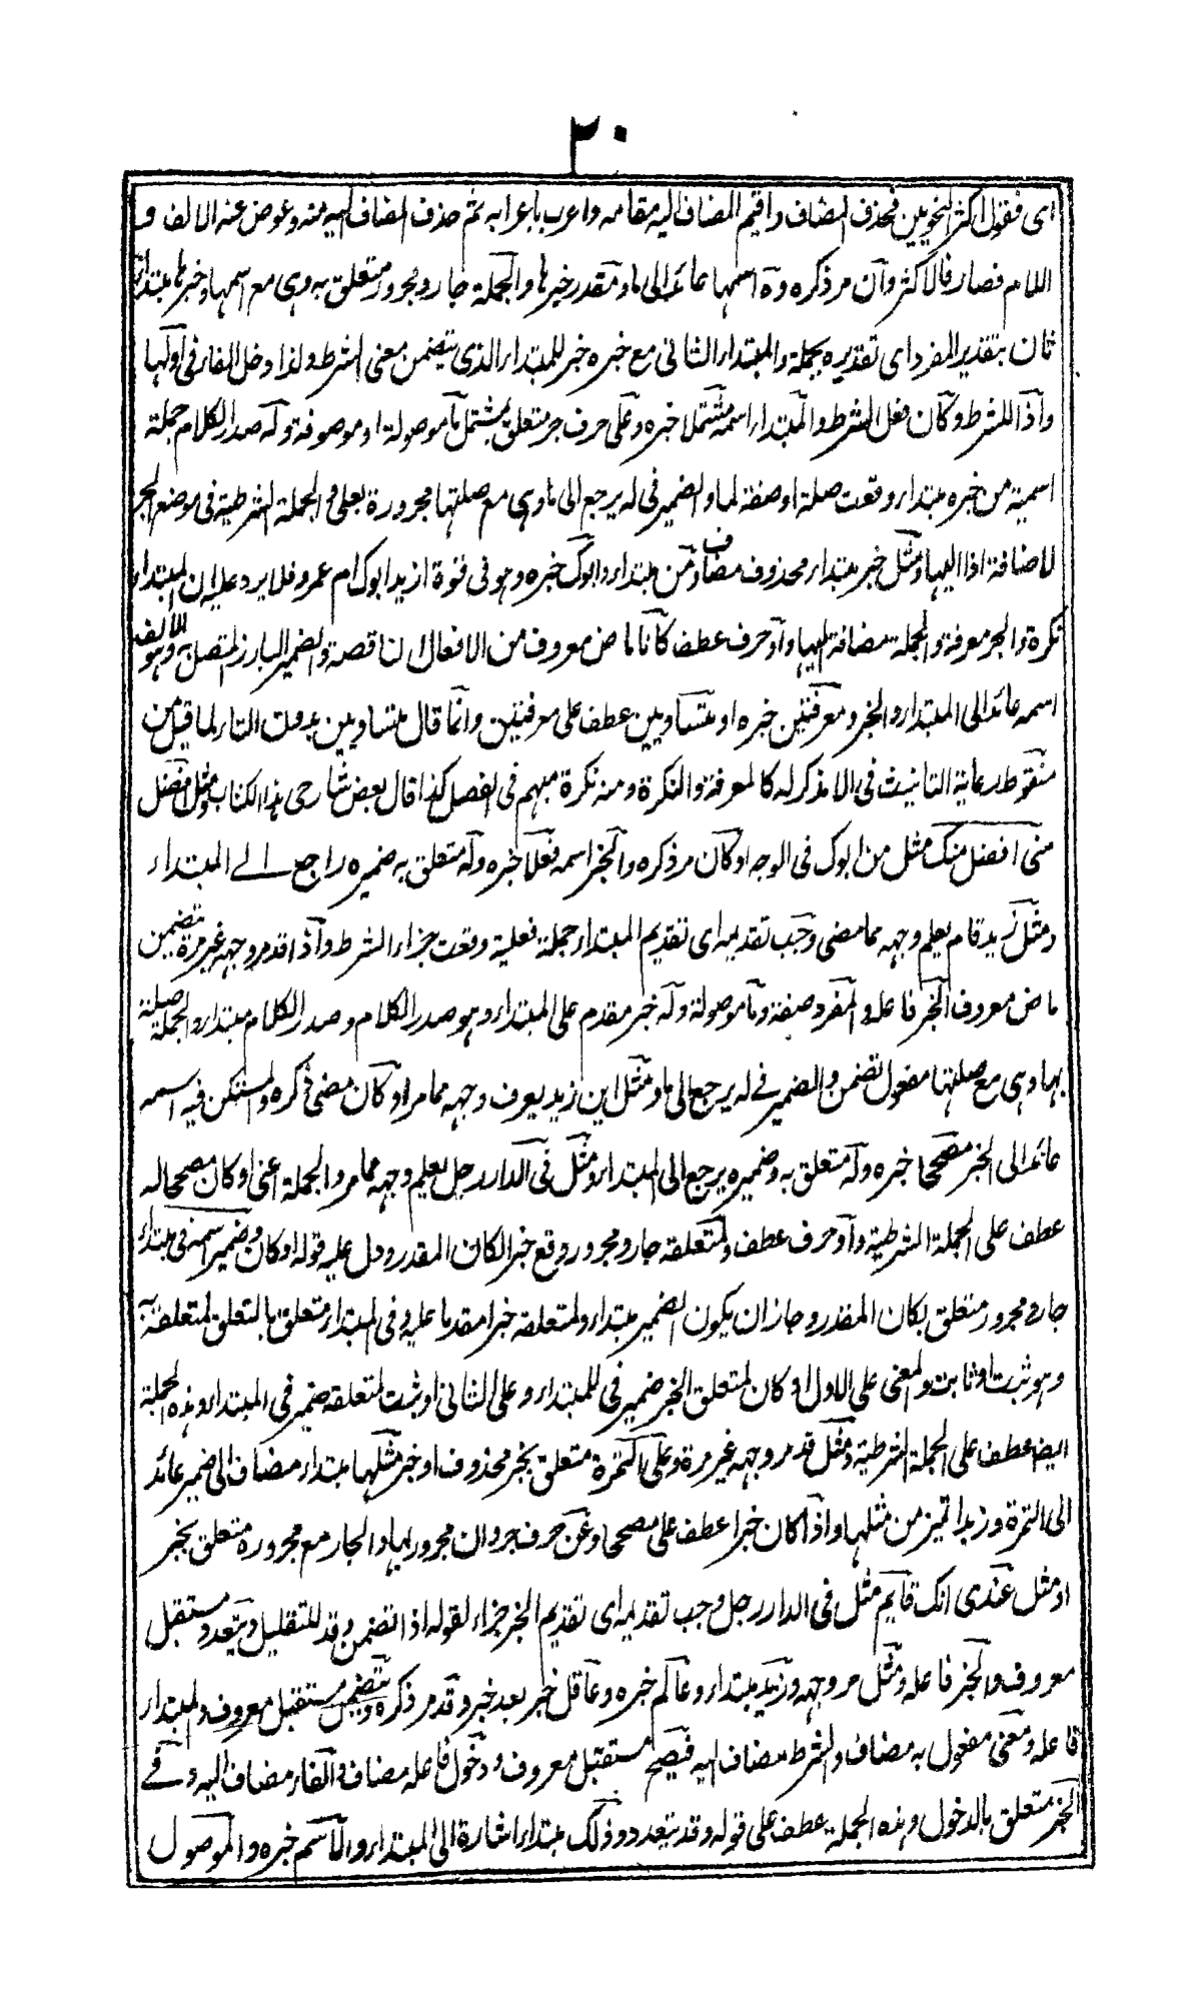 ٢٠
اى فقول اكثر النحويين فحذف المضاف واقيم المضاف اليه مقامه واعرب باعرابه ثم حذف المضاف اليه منه وعوض عنه الالف و
اللام فصار فالاكثر وآن مر ذكره وه اسمها عائد الى ما ومقدر خبرها والجملة جار ومجرور متعلق به وهى مع اسمها وخبرها مبتداء
ثان بتقدير المفرد اى تقديره بجملة والمبتداء الثانى مع خبره خبر للمبتداء الذى يتضمن معنى الشرط ولذا دخل الفاء فى اولها
وآذا للشرط وكآن فعل الشرط والمبتداء اسمه مشتملا خبره وعلى حرف جر متعلق بمشتمل مآ موصولة او موصوفة وله صدر الكلام جملة
اسمية من خبره مبتداء وقعت صلة او صفة لما والضمير فى له يرجع الى ما وهى مع صلتها مجرورة بعلى والجملة الشرطية فى موضع الجر
لاضافة اذا اليها ومثل خبر مبتداء محذوف مضاف ومن مبتداء وابوك خبره وهو فى قوة ازيد ابوك ام عمرو فلا يرد عليه ان المبتداء
نكرة والخبر معرفة والجملة مضافة اليها وآو حرف عطف كآنا ماض معروف من الافعال الناقصة والضمير البارز المتصل به وهو الالف
اسمه عائد الى المبتداء والخبر ومعرفتين خبره او متساويين عطف على معرفتين وانما قال متساويين بدون التاء لما قيل من
سقوط رعاية التانيث فى الامذكر له كالمعرفة والنكرة ومنه نكرة مبهم فى الفصل كذا قال بعض شارحى هذا الكتاب ومثل افضل
منى افضل منك مثل من ابوك فى الوجه او كآن مر ذكره والخبر اسمه فعلا خبره وله متعلق به ضميره راجع الے المبتداء
ومثل زيد قام يعلم وجهه مما مضى وجب تقديمه اى تقديم المبتداء جملة فعلية وقعت جزاء الشرط وآذا قد مر وجهه غير مرة تضمن
ماض معروف الخبر فاعله والمفرد صفة ومآ موصولة وله خبر مقدم على المبتداء وهو صدر الكلام وصدر الكلام مبتداء والجملة صلة
بها وهى مع صلتها مفعول تضمن والضمير فے له يرجع الى ما ومثل اين زيد يعرف وجهه مما مر او كآن مضى ذكره والمستكن فيه اسمه
عائد الى الخبر مصححا خبره وله متعلق به وضميره يرجع الى المبتداء ومثل فى الدار رجل يعلم وجهه مما مر والجملة اعنى او كان مصححا له
عطف على الجملة الشرطية وآو حرف عطف ولمتعلقه جار ومجرور وقع خبر الكان المقدر ودل عليه قوله او كان وضمير اسمه فى مبتداء
جار ومجرور متعلق بكان المقدر وجاز ان يكون الضمير مبتداء ولمتعلقه خبرا مقدما عليه وفى المبتداء متعلق بالتعلق لمتعلقه
وهو ثبت او ثابت والمعنى على الاول او كان لمتعلق الخبر ضمير فى للمبتداء وعلى الثانى او ثبت لمتعلقه ضمير فى المبتداء وهذه الجملة
ايضا عطف على الجملة الشرطية ومثل قد مر وجهه غير مرة وعلى التمرة متعلق بخبر محذوف او خبر مثلها مبتداء مضاف الى ضمير عائد
الى التمرة وزبدا تميز من مثلها واذا كان خبرا عطف على مصححا وعن حرف جر وان مجرور بها والجار مع مجروره متعلق بخبر
او مثل عندى انك قايم مثل فى الدار رجل وجب تقديمه اى تقديم الخبر جزاء لقوله اذا تضمن وقد للتقليل ويتعدد مستقبل
معروف والخبر فاعله ومثل مر وجهه وزيد مبتداء وعالم خبره وعاقل خبر بعد خبر وقد مر ذكره ويتضمن مستقبل معروف والمبتداء
فاعله ومعنى مفعول به مضاف والشرط مضاف اليه فيصح مستقبل معروف ودخول فاعله مضاف والفاء مضاف اليه وفے
الخبر متعلق بالدخول وهذه الجملة عطف على قوله وقد يتعدد وذلك مبتداء اشارة الى المبتداء والآسم خبره والموصول